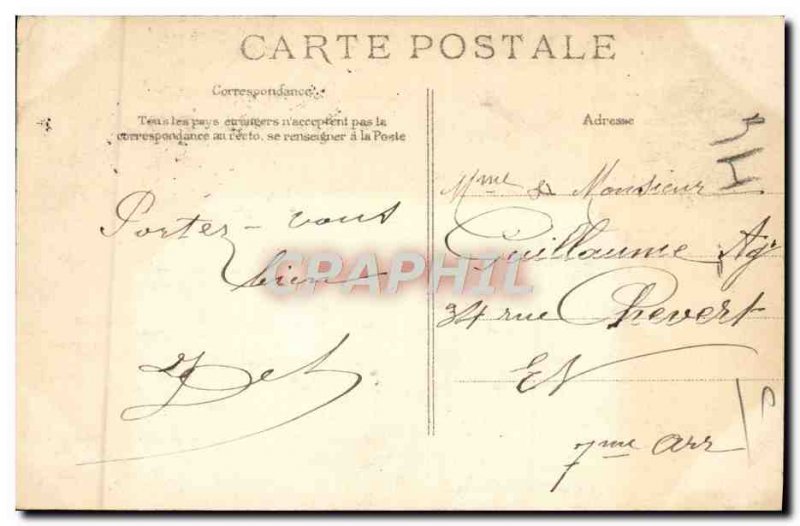 CARTE POSTALE
Correspondance
Tous les pays étrangers n'acceptent pas la
correspondance au recto, se renseigner à la Poste
Portez-vous
bien
Adresse
Mme & Monsieur
Guillaume Agr
34 rue Chevert
EV
7me arr
CPAPHIL